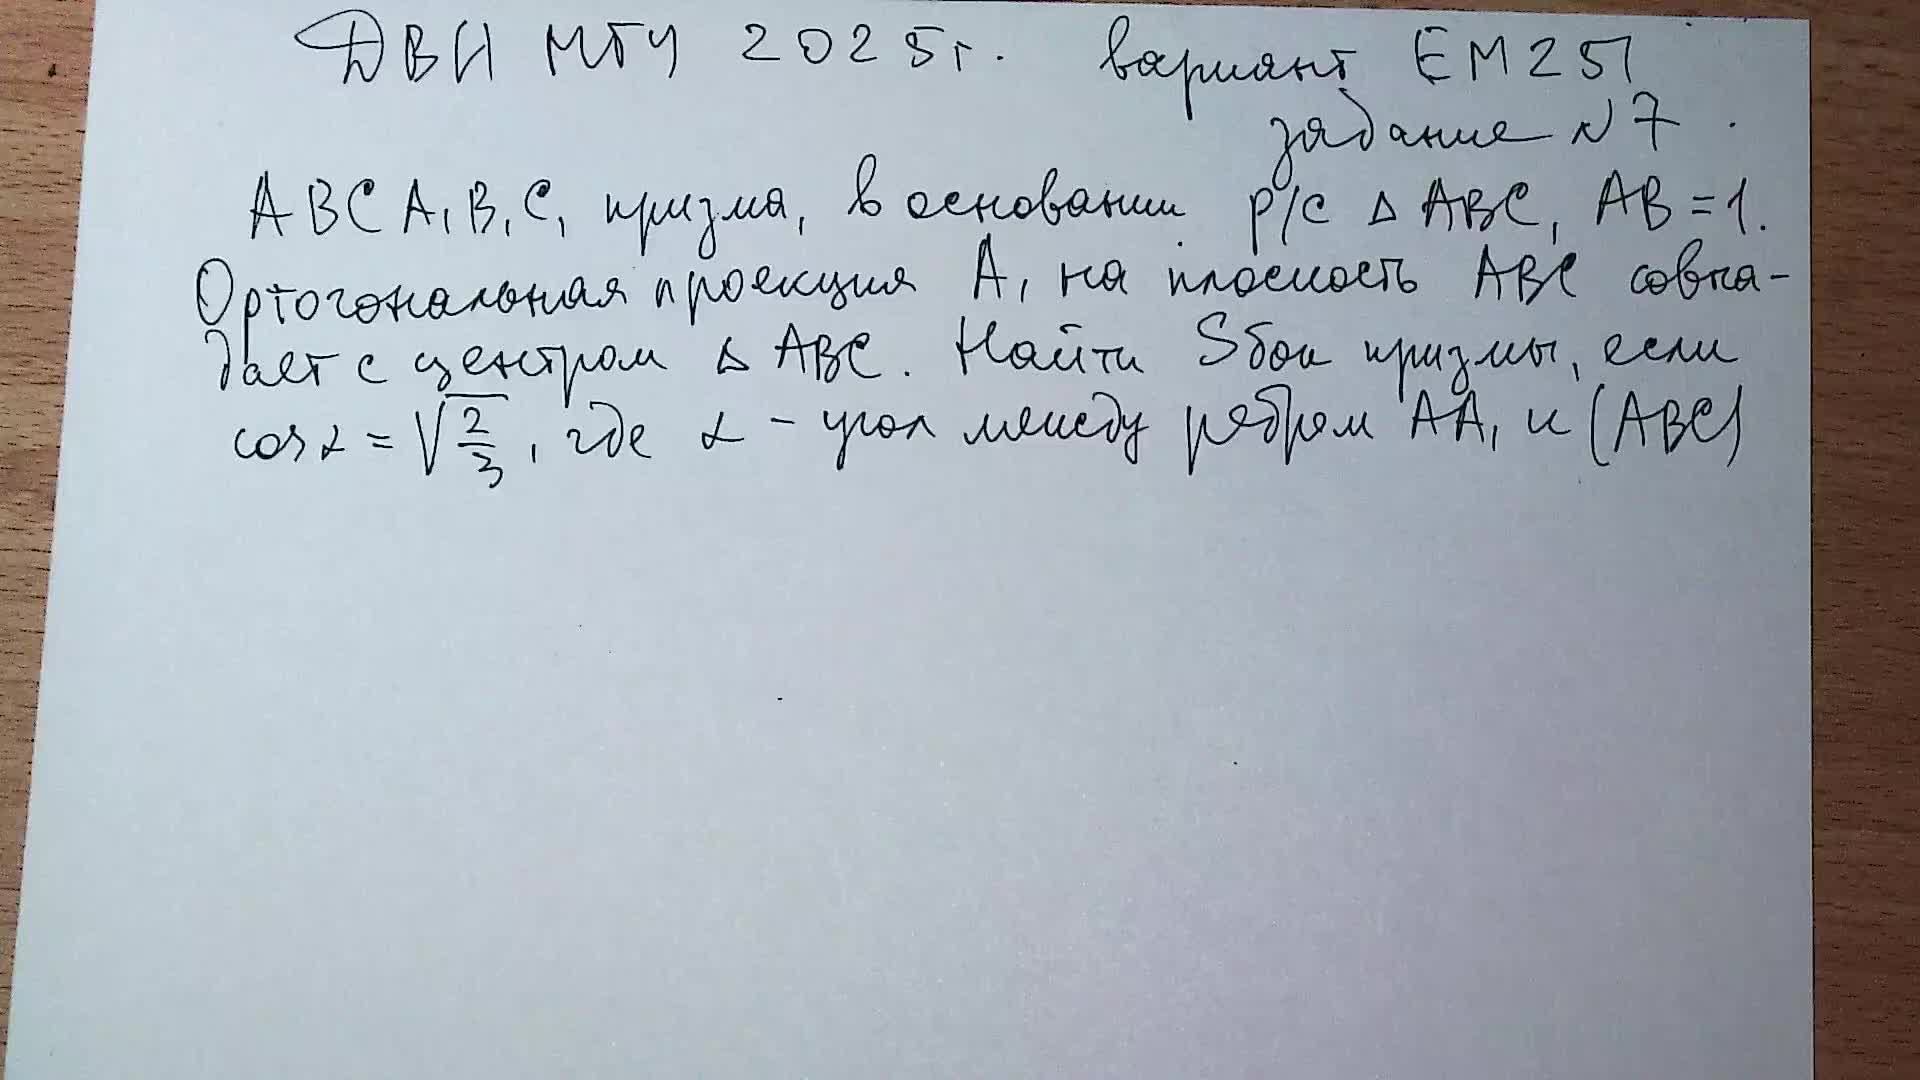 ДВИ МГУ 2025г. вариант ЕМ251
задание №7
ABCA₁B₁C₁ призма, в основании р/с Δ ABC, AB = 1.
Ортогональная проекция A₁ на плоскость ABC совпа-
дает с центром Δ ABC. Найти Sбок призмы, если
cos α = √(2/3), где α - угол между ребром AA₁ и (ABC)